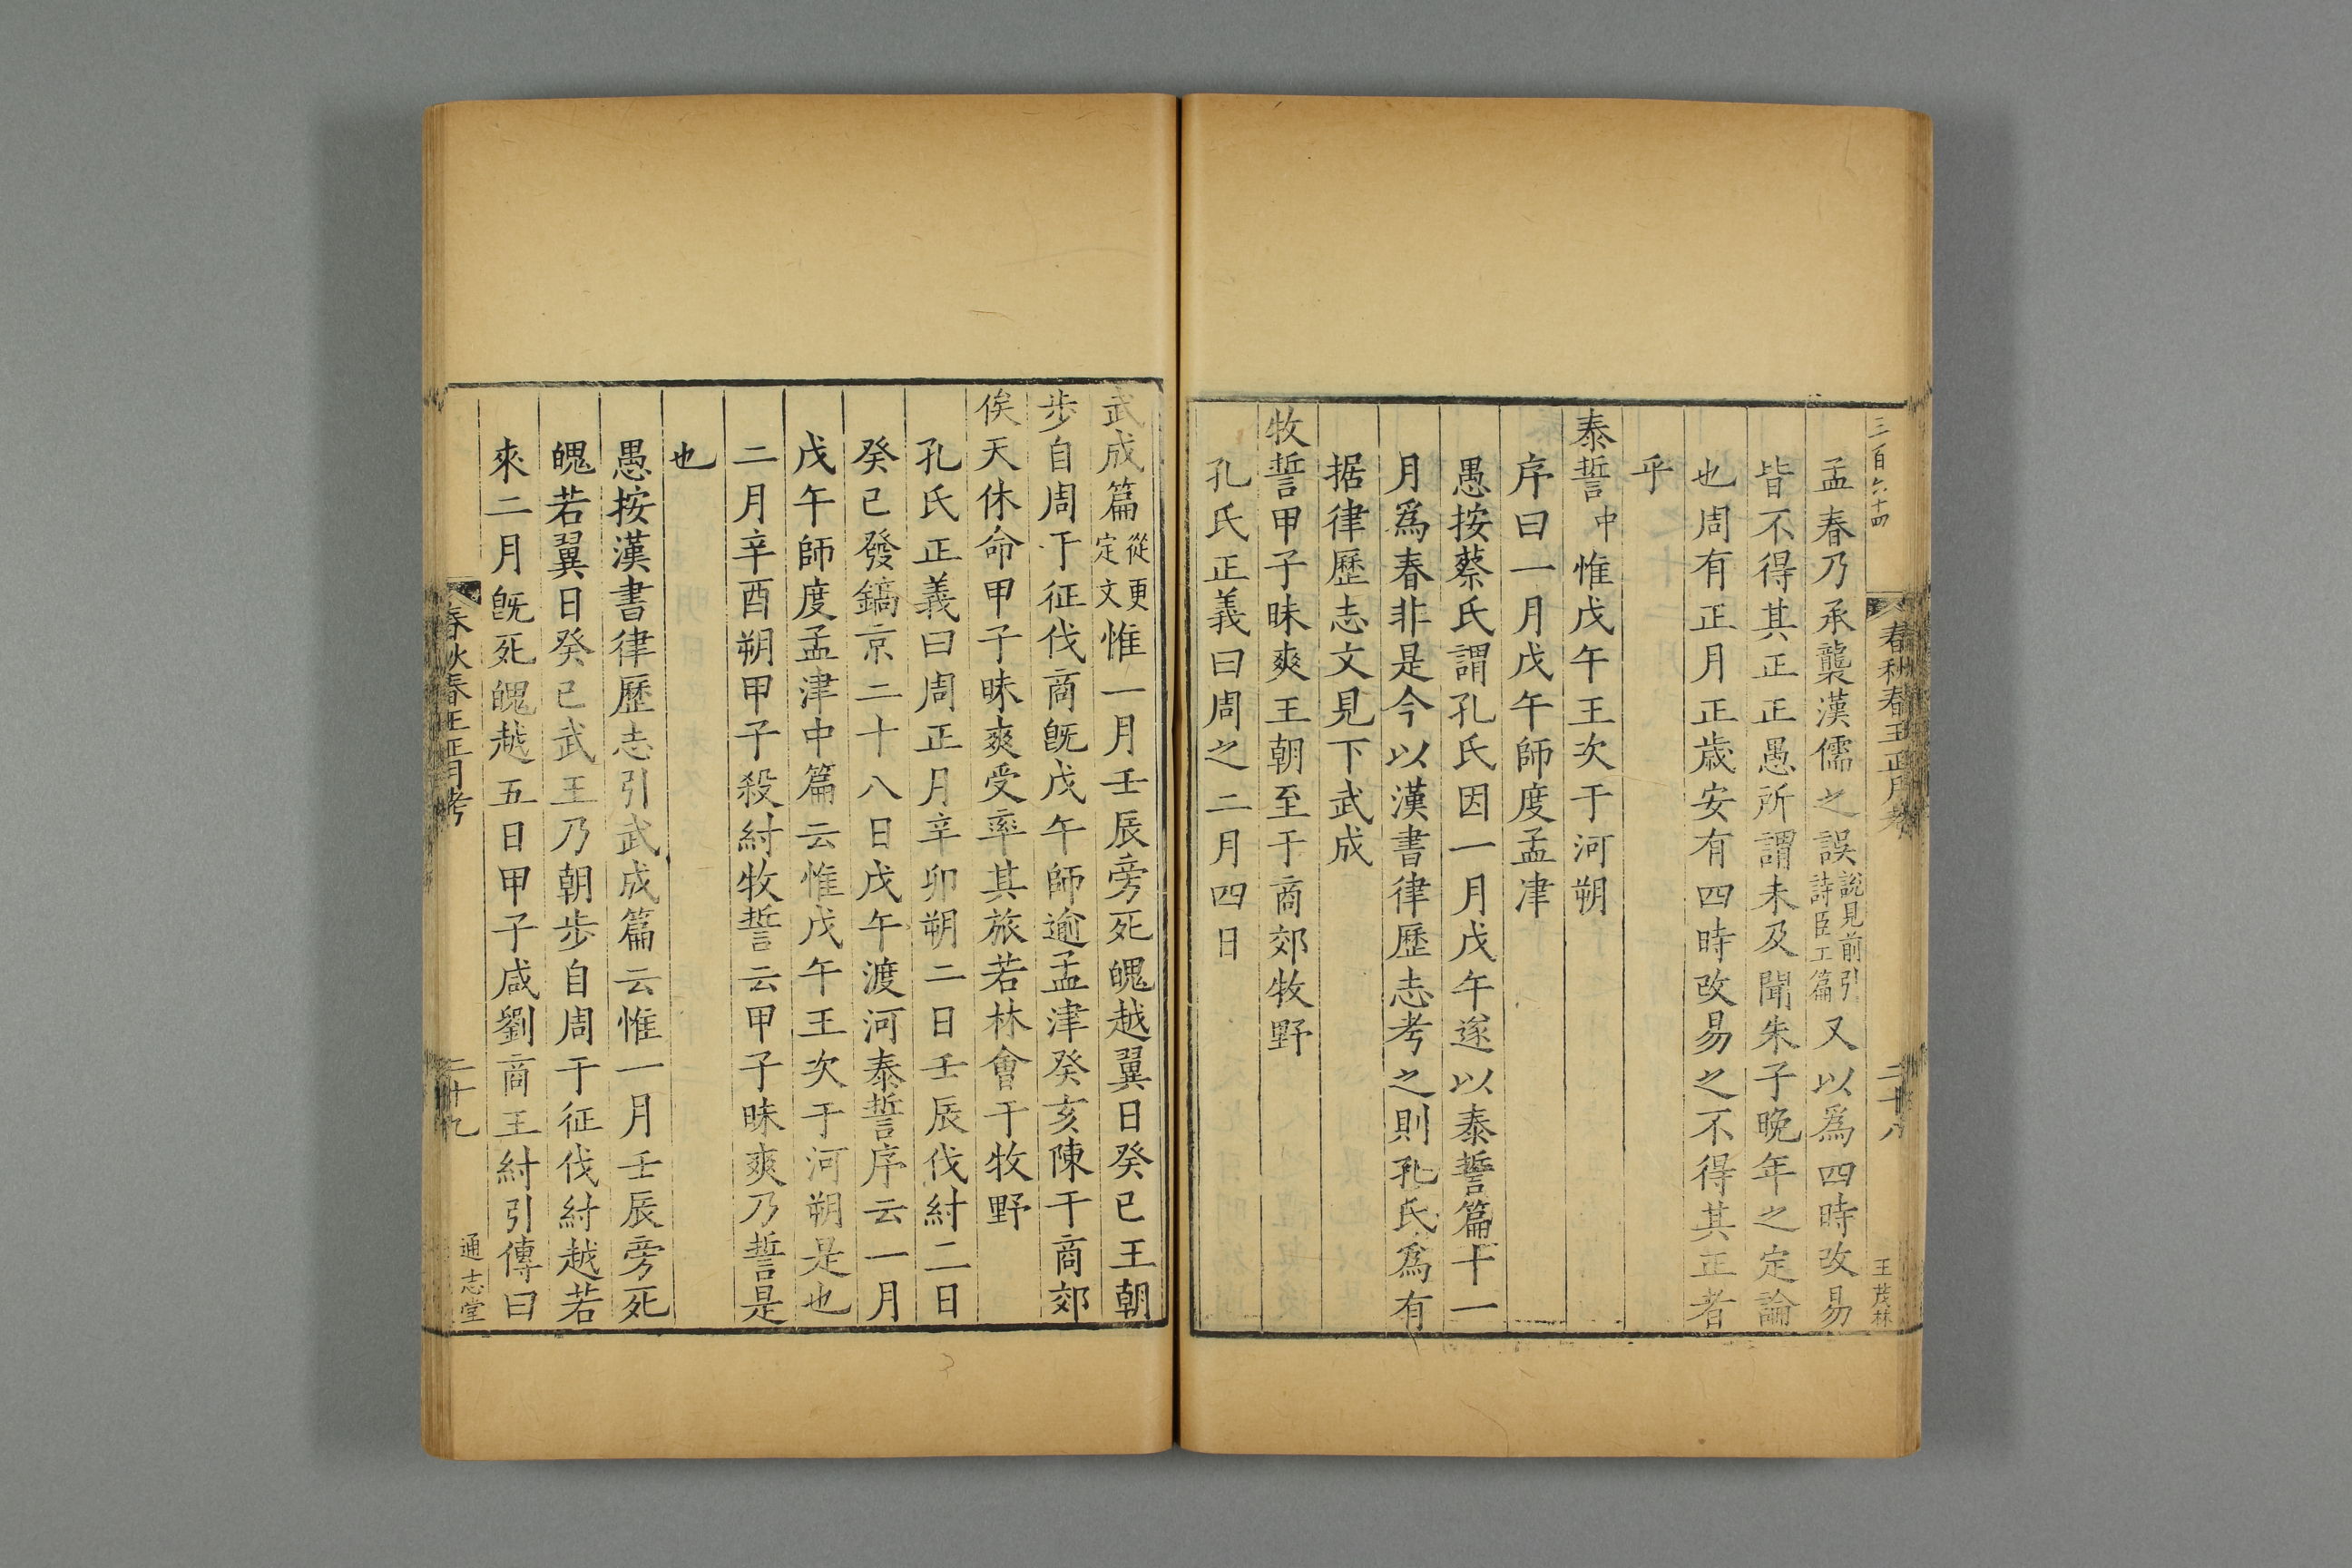 三百六十四
春秋春王正月考
二十八
王茂林
孟春乃承襲漢儒之誤說見前引詩臣工篇又以爲四時改易
皆不得其正正愚所謂未及聞朱子晚年之定論
也周有正月正歲安有四時改易之不得其正者
乎
泰誓中惟戊午王次于河朔
序曰一月戊午師度孟津
愚按蔡氏謂孔氏因一月戊午遂以泰誓篇十一
月爲春非是今以漢書律歷志考之則孔氏爲有
据律歷志文見下武成
牧誓甲子昧爽王朝至于商郊牧野
孔氏正義曰周之二月四日
武成篇從更定文惟一月壬辰旁死魄越翼日癸巳王朝
步自周于征伐商旣戊午師逾孟津癸亥陳于商郊
俟天休命甲子昧爽受率其旅若林會于牧野
孔氏正義曰周正月辛卯朔二日壬辰伐紂二日
癸巳發鎬京二十八日戊午渡河泰誓序云一月
戊午師度孟津中篇云惟戊午王次于河朔是也
二月辛酉朔甲子殺紂牧誓云甲子昧爽乃誓是
也
愚按漢書律歷志引武成篇云惟一月壬辰旁死
魄若翼日癸巳武王乃朝步自周于征伐紂越若
來二月旣死魄越五日甲子咸劉商王紂引傳曰
春秋春王正月考
二十九
通志堂